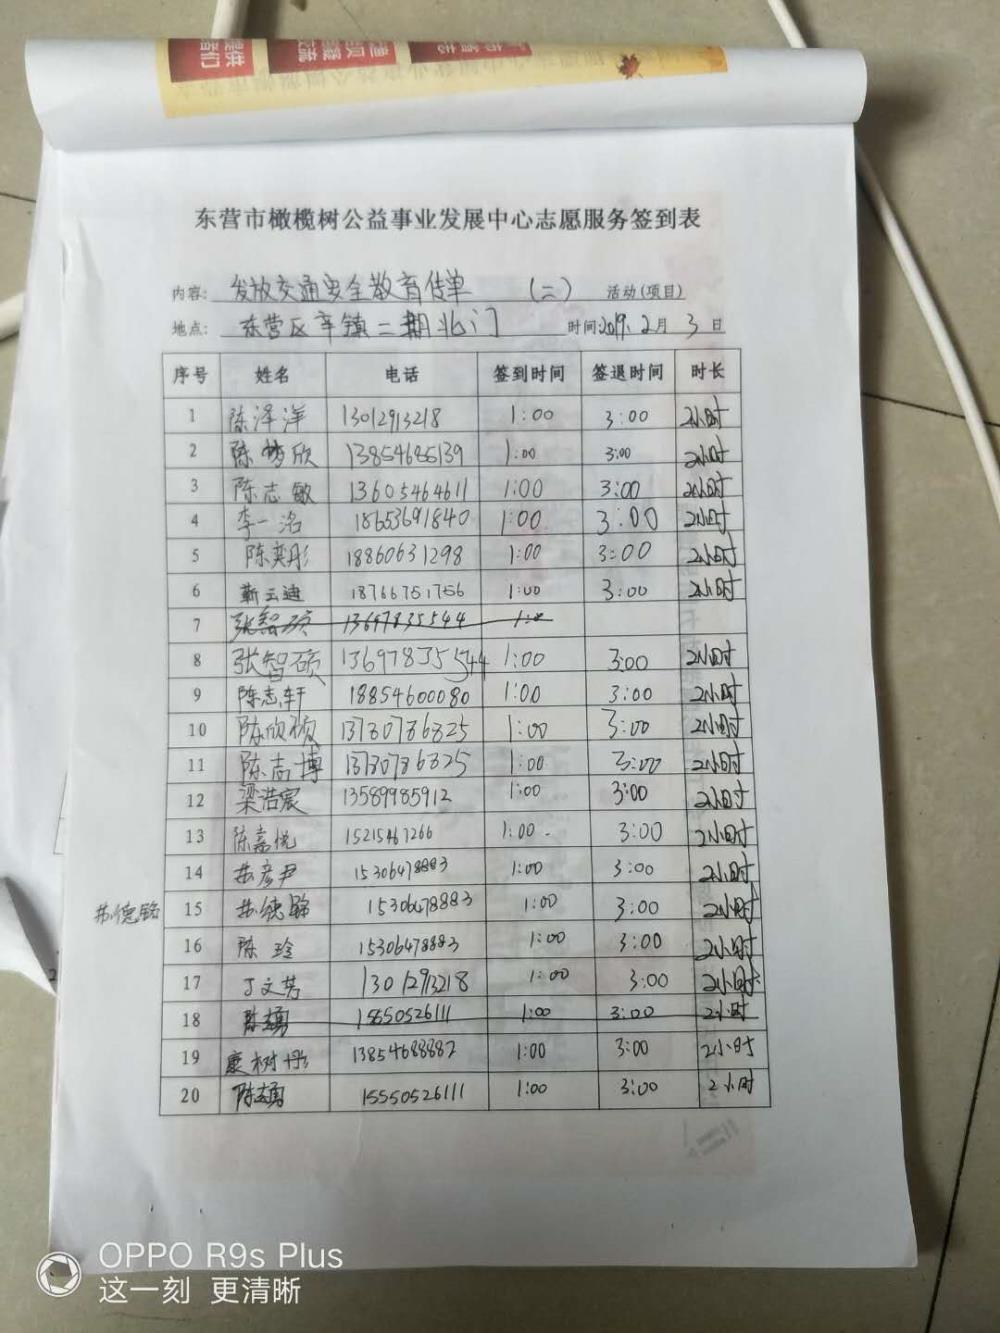 东营市橄榄树公益事业发展中心志愿服务签到表
内容: 发放交通安全教育传单 (二) 活动(项目)
地点: 东营区辛镇二期北门 时间2019.2月3日
序号 姓名 电话 签到时间 签退时间 时长
1 陈泽洋 13012913218 1:00 3:00 2小时
2 陈梦欣 13854685139 1:00 3:00 2小时
3 陈志敏 13605464611 1:00 3:00 2小时
4 李一洺 18653691840 1:00 3:00 2小时
5 陈奕彤 18860631298 1:00 3:00 2小时
6 靳云迪 18766751756 1:00 3:00 2小时
7 张智硕 13697835544 1:00
8 张智硕 13697835544 1:00 3:00 2小时
9 陈志轩 18854600080 1:00 3:00 2小时
10 陈欣桢 13780786825 1:00 3:00 2小时
11 陈志博 13780786325 1:00 3:00 2小时
12 梁浩宸 13589985912 1:00 3:00 2小时
13 陈嘉悦 15215467266 1:00 3:00 2小时
14 苏彦尹 15306478883 1:00 3:00 2小时
苏德铭 15 苏德铭 15306478883 1:00 3:00 2小时
16 陈玲 15306478883 1:00 3:00 2小时
17 丁文芳 13012913218 1:00 3:00 2小时
18 陈勇 15550526111 1:00 3:00 2小时
19 康树彤 13854688882 1:00 3:00 2小时
20 陈勇 15550526111 1:00 3:00 2小时
OPPO R9s Plus
这一刻 更清晰